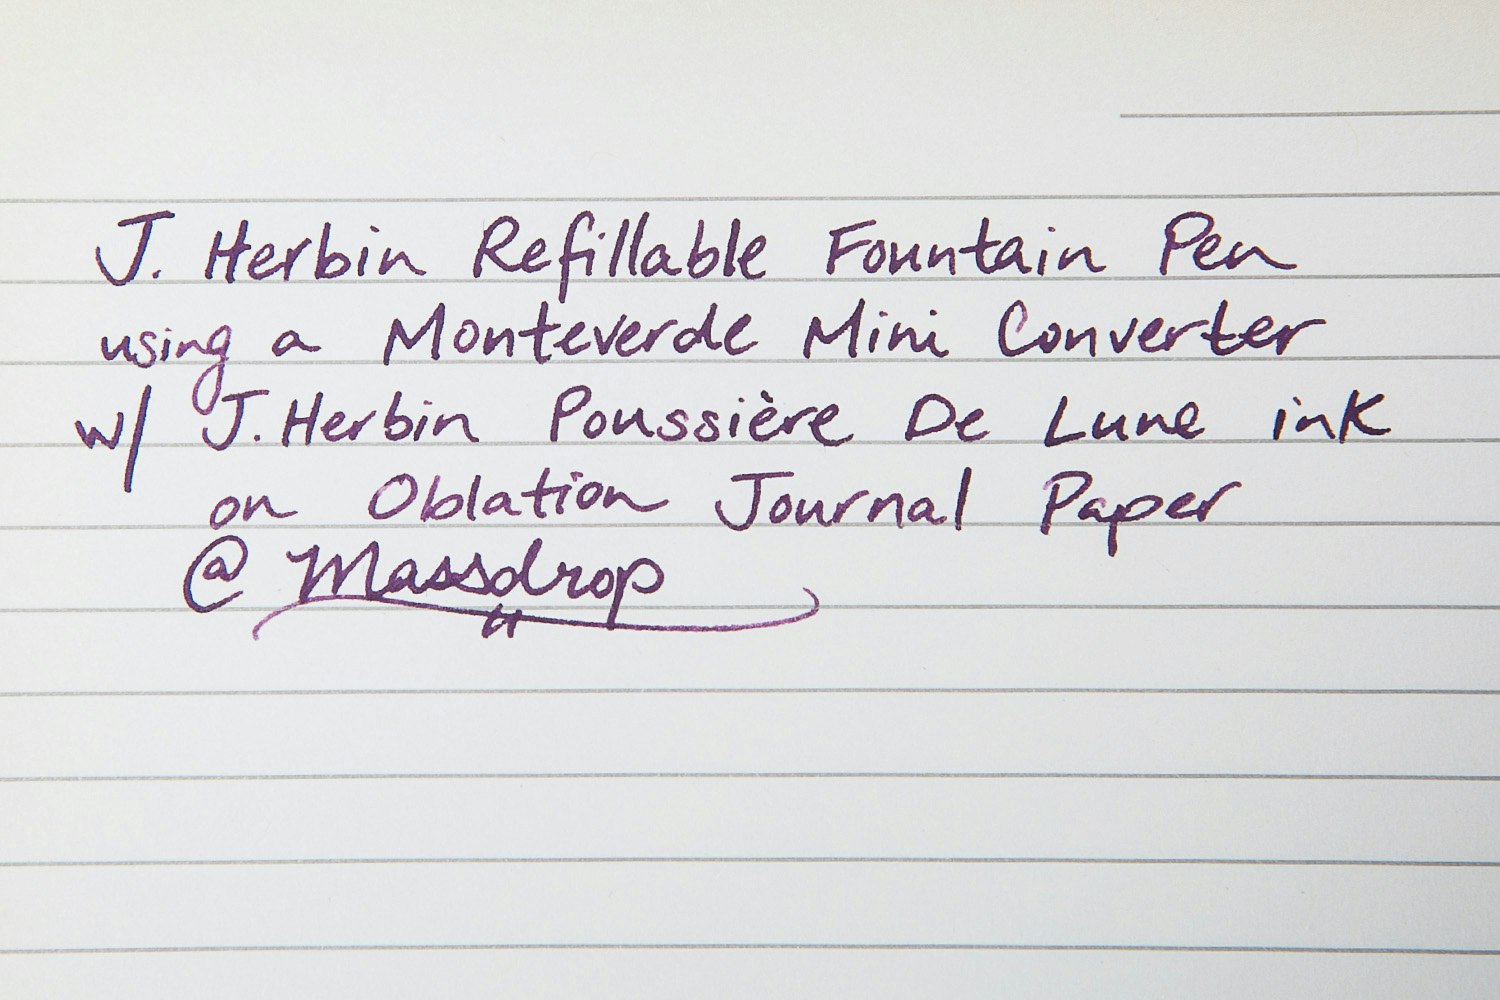 J. Herbin Refillable Fountain Pen
using a Monteverde Mini Converter
w/ J. Herbin Poussière De Lune ink
on Oblation Journal Paper
@ Massdrop